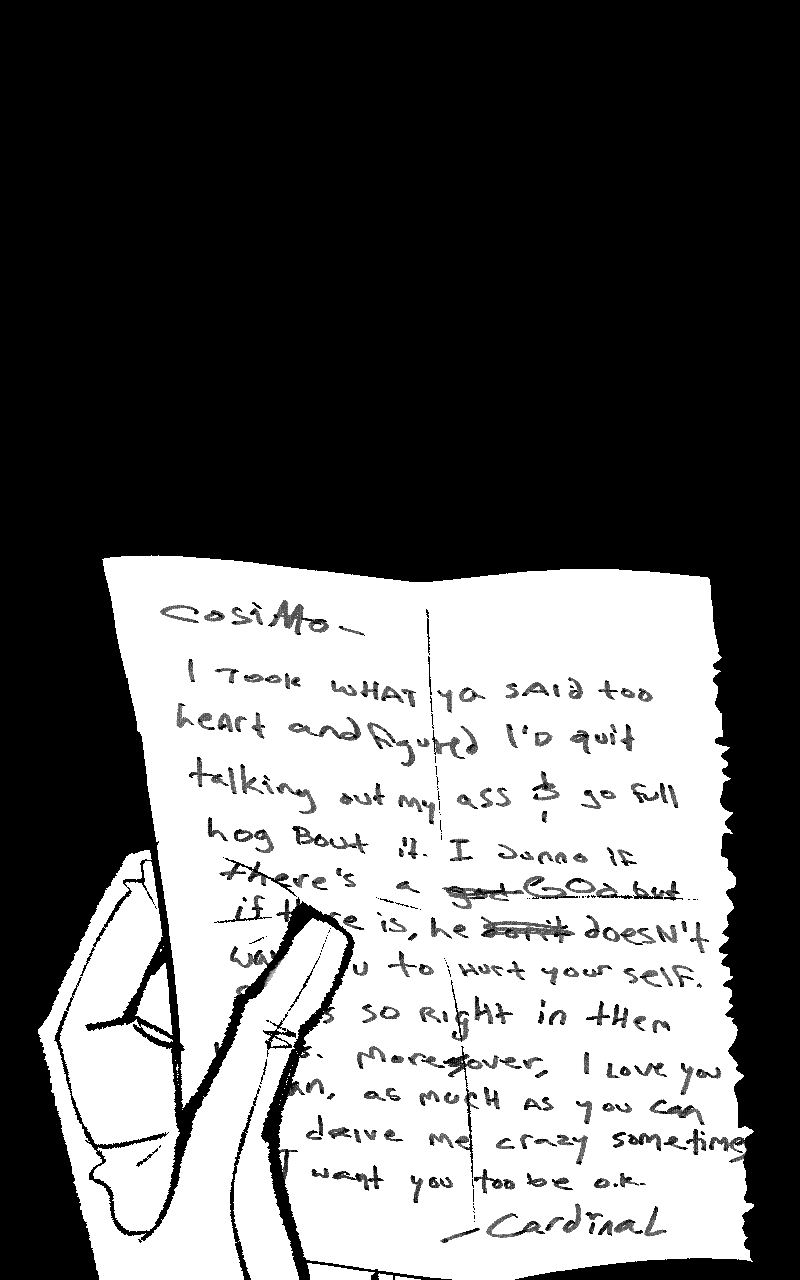 cosiMo—
I Took WHAT ya sAId too
heart and figured I'D quit
talking out my ass & go full
hog Bout it. I dunno if
there's a god GOd but
if there is, he don't doesN't
u to Hurt your self.
so RigHt in tHem
Moreover, I Love you
as mucH As you can
drive me crazy sometimes
I want you too be o.k.
—CardinaL